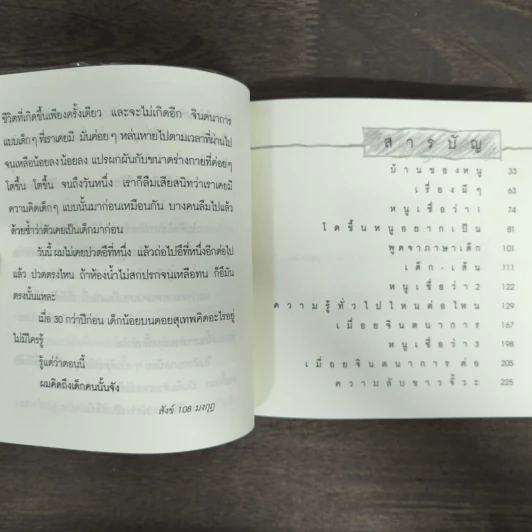 ชีวิตที่เกิดขึ้นเพียงครั้งเดียว และจะไม่เกิดอีก จินตนาการ
แบบเด็กๆ ที่เราเคยมี มันค่อยๆ หล่นหายไปตามเวลาที่ผ่านไป
จนเหลือน้อยลงน้อยลง แปรผกผันกับขนาดร่างกายที่ค่อยๆ
โตขึ้น โตขึ้น จนถึงวันหนึ่ง เราก็ลืมเสียสนิทว่าเราเคยมี
ความคิดเด็กๆ แบบนั้นมาก่อนเหมือนกัน บางคนลืมไปแล้ว
ด้วยซ้ำว่าตัวเคยเป็นเด็กมาก่อน
วันนี้ ผมไม่เคยปวดอึที่หนึ่ง แล้วถ่อไปอึที่หนึ่งอีกต่อไป
แล้ว ปวดตรงไหน ถ้าห้องน้ำไม่สกปรกจนเหลือทน ก็อึมัน
ตรงนั้นแหละ
เมื่อ 30 กว่าปีก่อน เด็กน้อยบนดอยสุเทพคิดอะไรอยู่
ไม่มีใครรู้
รู้แต่ว่าตอนนี้
ผมคิดถึงเด็กคนนั้นจัง
สังข์ 108 มงกุฎ
สารบัญ
บ้านของหนู 33
เรื่องผีๆ 63
หนูเชื่อว่า 1 74
โตขึ้นหนูอยากเป็น 81
พูดจาภาษาเด็ก 101
เด็ก-เด้น 111
หนูเชื่อว่า 2 122
ความรู้ทั่วไปไหนต่อไหน 129
เมื่อยจินตนาการ 167
หนูเชื่อว่า 3 198
เมื่อยจินตนาการ ต่อ 205
ความลับชาวจิ๊วะ 225